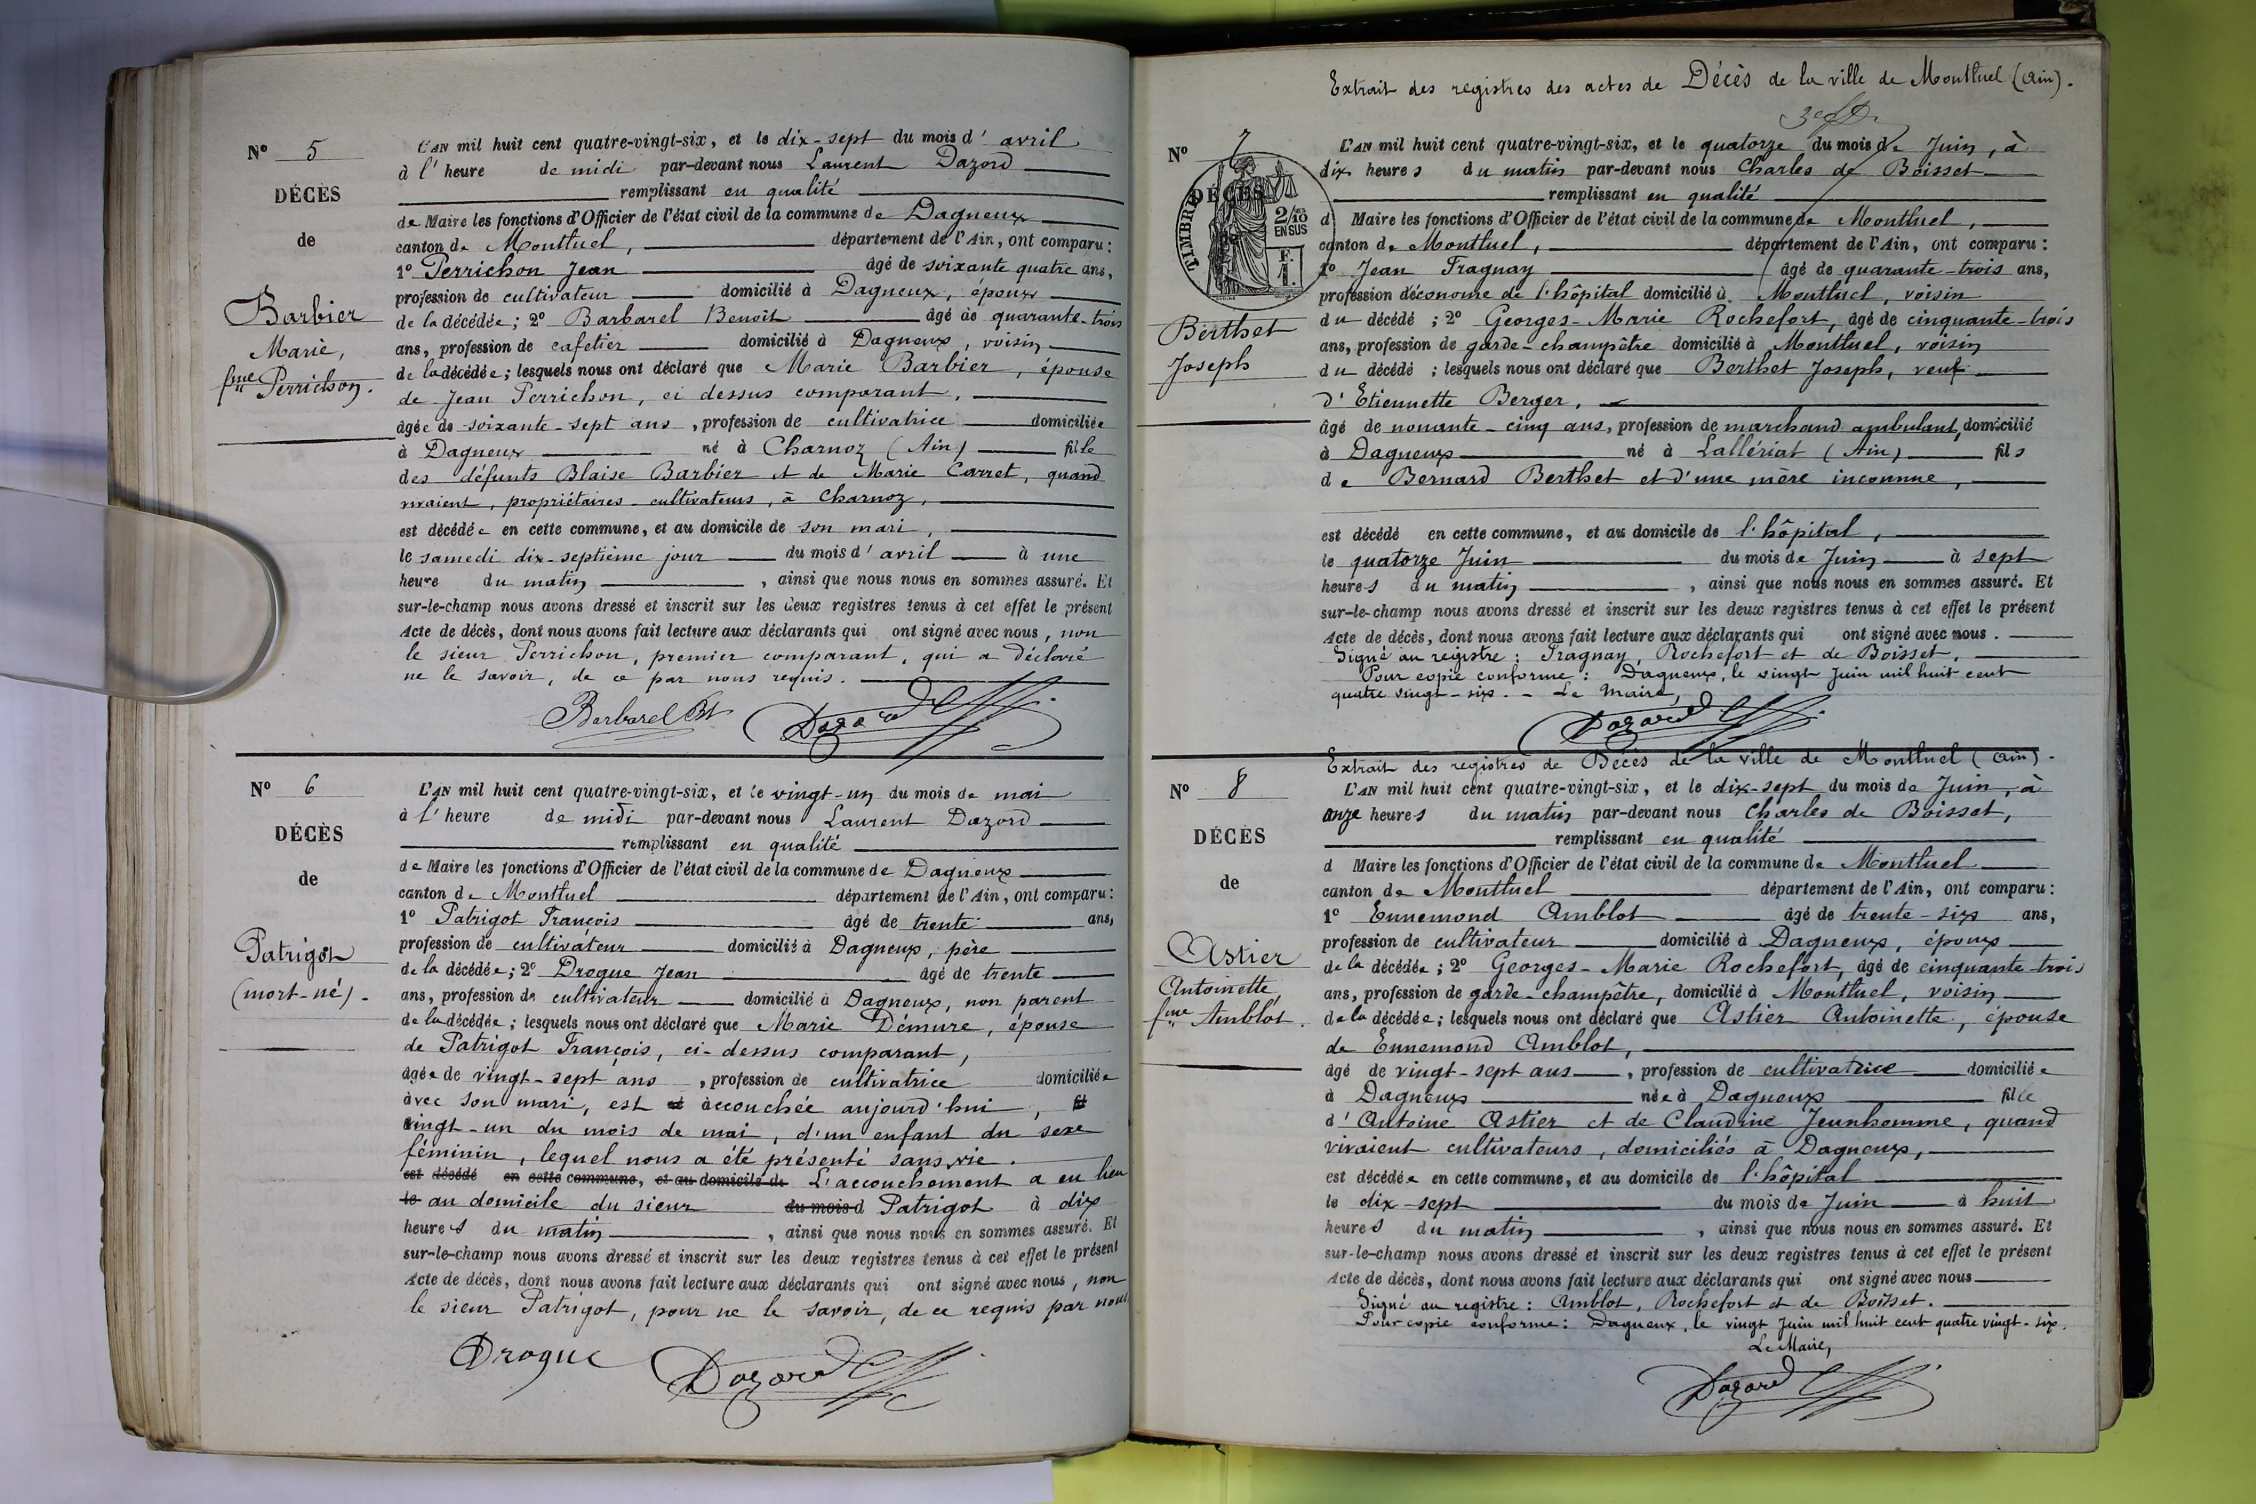 Nº 5
DÉCÈS
de
Barbier
Marie,
fme Perrichon.
L'AN mil huit cent quatre-vingt-six, et le dix-sept du mois d'avril
à l'heure de midi par-devant nous Laurent Dazord
remplissant en qualité
de Maire les fonctions d'Officier de l'état civil de la commune de Dagneux
canton de Montluel, département de l'Ain, ont comparu :
1º Perrichon Jean âgé de soixante quatre ans,
profession de cultivateur domicilié à Dagneux, époux
de la décédée ; 2º Barbarel Benoit âgé de quarante-trois
ans, profession de cafetier domicilié à Dagneux, voisin
de la décédée ; lesquels nous ont déclaré que Marie Barbier, épouse
de Jean Perrichon, ci dessus comparant,
âgée de soixante-sept ans, profession de cultivatrice domiciliée
à Dagneux né à Charnoz (Ain) fille
des défunts Blaise Barbier et de Marie Carret, quand
vivaient, propriétaires-cultivateurs, à Charnoz,
est décédée en cette commune, et au domicile de son mari,
le samedi dix-septième jour du mois d'avril à une
heure du matin, ainsi que nous nous en sommes assuré. Et
sur-le-champ nous avons dressé et inscrit sur les deux registres tenus à cet effet le présent
Acte de décès, dont nous avons fait lecture aux déclarants qui ont signé avec nous, non
le sieur Perrichon, premier comparant, qui a déclaré
ne le savoir, de ce par nous requis.
Barbarel Bt Dazord
Nº 6
DÉCÈS
de
Patrigot
(mort-né).
L'AN mil huit cent quatre-vingt-six, et le vingt-un du mois de mai
à l'heure de midi par-devant nous Laurent Dazord
remplissant en qualité
de Maire les fonctions d'Officier de l'état civil de la commune de Dagneux
canton de Montluel département de l'Ain, ont comparu :
1º Patrigot François âgé de trente ans,
profession de cultivateur domicilié à Dagneux, père
de la décédée ; 2º Drogue Jean âgé de trente
ans, profession de cultivateur domicilié à Dagneux, non parent
de la décédée ; lesquels nous ont déclaré que Marie Démure, épouse
de Patrigot François, ci-dessus comparant,
âgée de vingt-sept ans, profession de cultivatrice domiciliée
avec son mari, est accouchée aujourd'hui,
vingt-un du mois de mai, d'un enfant du sexe
féminin, lequel nous a été présenté sans vie.
est décédé en cette commune, et au domicile de L'accouchement a eu lieu
le au domicile du sieur du mois d Patrigot à dix
heures du matin, ainsi que nous nous en sommes assuré. Et
sur-le-champ nous avons dressé et inscrit sur les deux registres tenus à cet effet le présent
Acte de décès, dont nous avons fait lecture aux déclarants qui ont signé avec nous, non
le sieur Patrigot, pour ne le savoir, de ce requis par nous
Drogue Dazord
Extrait des registres des actes de Décès de la ville de Montluel (Ain).
Nº 7
DÉCÈS
TIMBRE
2/10 EN SUS
F. 1.
Berthet
Joseph
L'AN mil huit cent quatre-vingt-six, et le quatorze du mois de Juin, à
dix heures du matin par-devant nous Charles de Boisset
remplissant en qualité
d Maire les fonctions d'Officier de l'état civil de la commune de Montluel,
canton de Montluel, département de l'Ain, ont comparu :
1º Jean Fragnay âgé de quarante-trois ans,
profession d'économe de l'hôpital domicilié à Montluel, voisin
du décédé ; 2º Georges-Marie Rochefort, âgé de cinquante-trois
ans, profession de garde-champêtre domicilié à Montluel, voisin
du décédé ; lesquels nous ont déclaré que Berthet Joseph, veuf
d'Etiennette Berger,
âgé de nonante-cinq ans, profession de marchand ambulant, domicilié
à Dagneux né à Lallériat (Ain) fils
de Bernard Berthet et d'une mère inconnue,
est décédé en cette commune, et au domicile de l'hôpital,
le quatorze Juin du mois de Juin à sept
heures du matin, ainsi que nous nous en sommes assuré. Et
sur-le-champ nous avons dressé et inscrit sur les deux registres tenus à cet effet le présent
Acte de décès, dont nous avons fait lecture aux déclarants qui ont signé avec nous.
Signé au registre : Fragnay, Rochefort et de Boisset,
Pour copie conforme : Dagneux, le vingt Juin mil huit cent
quatre vingt-six. - Le Maire,
Dazord
Extrait des registres de Décès de la ville de Montluel (Ain).
Nº 8
DÉCÈS
de
Astier
Antoinette,
fme Amblot.
L'AN mil huit cent quatre-vingt-six, et le dix-sept du mois de Juin, à
onze heures du matin par-devant nous Charles de Boisset,
remplissant en qualité
d Maire les fonctions d'Officier de l'état civil de la commune de Montluel
canton de Montluel département de l'Ain, ont comparu :
1º Ennemond Amblot âgé de trente-six ans,
profession de cultivateur domicilié à Dagneux, époux
de la décédée ; 2º Georges-Marie Rochefort, âgé de cinquante-trois
ans, profession de garde-champêtre, domicilié à Montluel, voisin
de la décédée ; lesquels nous ont déclaré que Astier Antoinette, épouse
de Ennemond Amblot,
âgé de vingt-sept ans, profession de cultivatrice domiciliée
à Dagneux née à Dagneux fille
d'Antoine Astier et de Claudine Jeunhomme, quand
vivaient cultivateurs, domiciliés à Dagneux,
est décédée en cette commune, et au domicile de l'hôpital
le dix-sept du mois de Juin à huit
heures du matin, ainsi que nous nous en sommes assuré. Et
sur-le-champ nous avons dressé et inscrit sur les deux registres tenus à cet effet le présent
Acte de décès, dont nous avons fait lecture aux déclarants qui ont signé avec nous
Signé au registre : Amblot, Rochefort et de Boisset.
Pour copie conforme : Dagneux, le vingt Juin mil huit cent quatre vingt-six.
Le Maire,
Dazord